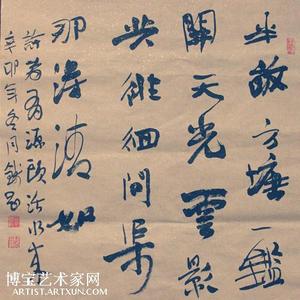 半亩方塘一鑑
開天光雲影
共徘徊問渠
那得清如
許為有源頭活水来
辛卯年冬月
博宝艺术家网
ARTIST.ARTXUN.COM